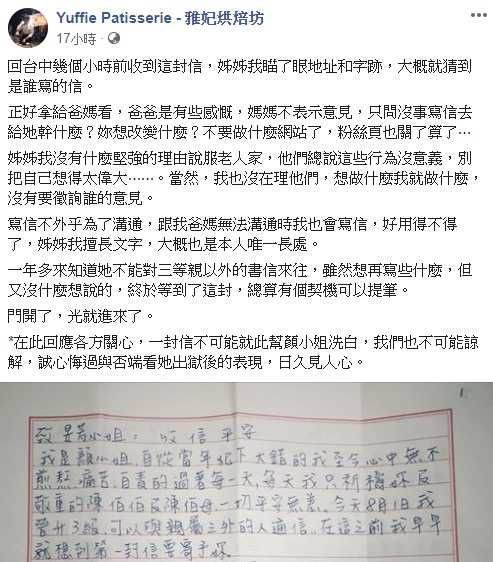 Yuffie Patisserie - 雅妃烘焙坊
17小時 ·
回台中幾個小時前收到這封信，姊姊我瞄了眼地址和字跡，大概就猜到
是誰寫的信。
正好拿給爸媽看，爸爸是有些感慨，媽媽不表示意見，只問沒事寫信去
給她幹什麼？妳想改變什麼？不要做什麼網站了，粉絲頁也關了算了…
姊姊我沒有什麼堅強的理由說服老人家，他們總說這些行為沒意義，別
把自己想得太偉大……。當然，我也沒在理他們，想做什麼我就做什麼，
沒有要徵詢誰的意見。
寫信不外乎為了溝通，跟我爸媽無法溝通時我也會寫信，好用得不得
了，姊姊我擅長文字，大概也是本人唯一長處。
一年多來知道她不能對三等親以外的書信來往，雖然想再寫些什麼，但
又沒什麼想說的，終於等到了這封，總算有個契機可以提筆。
門開了，光就進來了。
*在此回應各方關心，一封信不可能就此幫顏小姐洗白，我們也不可能諒
解，誠心悔過與否端看她出獄後的表現，日久見人心。
小姐：收信平安
我是顏小姐，自從當年犯下大錯的我至今心中無不
煎熬、痛苦、自責的過著每一天，每天我只祈禱妳及
敬重的陳伯伯及陳伯母一切平安無恙。今天8月1日我
晉升3級，可以與親屬之外的人通信，在這之前我早早
就想到第一封信要寄予妳